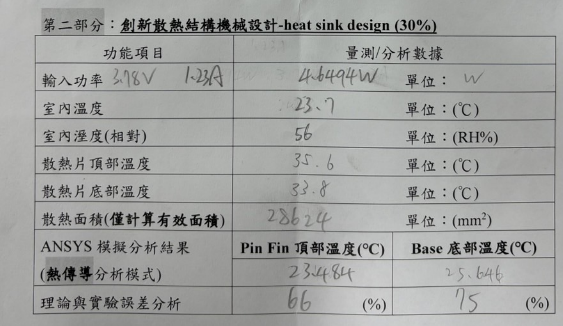 第二部分：創新散熱結構機械設計-heat sink design (30%)
功能項目 量測/分析數據
輸入功率 3.78V 1.23A 4.6494W 單位： W
室內溫度 23.7 單位：(℃)
室內溼度(相對) 56 單位：(RH%)
散熱片頂部溫度 35.6 單位：(℃)
散熱片底部溫度 33.8 單位：(℃)
散熱面積(僅計算有效面積) 28624 單位：(mm²)
ANSYS 模擬分析結果 Pin Fin 頂部溫度(℃) Base 底部溫度(℃)
(熱傳導分析模式) 23.484 25.646
理論與實驗誤差分析 66 (%) 75 (%)